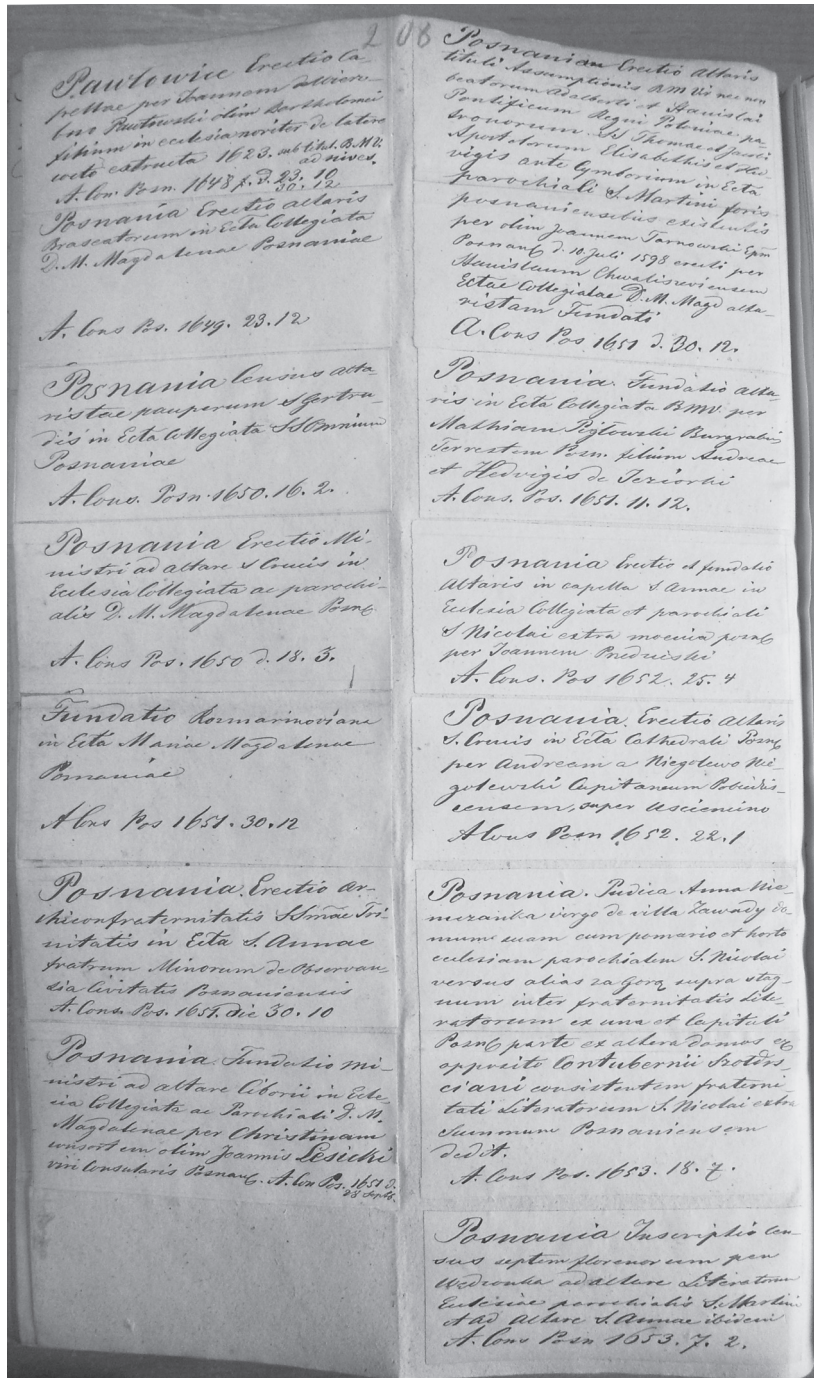 208
Pawłowice Erectio Ca-
pellae per Joannem
olim Bartholomei
filium in ecclesia noviter de latere
cocto extructa 1623. sub titul. B.M.V.
ad nives.
A. Con. Posn. 1648 f. d. 23. 10
30. 12
Posnania Erectio altaris
Braseatorum in Ecta Collegiata
D. M. Magdalenae Posnaniae
A. Cons Pos. 1649. 23. 12
Posnania Census alta-
ristae pauperum S Gertru-
dis in Ecta Collegiata SS Omnium
Posnaniae
A. Cons. Posn. 1650. 16. 2.
Posnania Erectio Mi-
nistri ad altare S Crucis in
Ecclesia Collegiata ac parochi-
alis D. M. Magdalenae Posn
A. Cons Pos. 1650 d. 18. 3.
Fundatio Rozmarinoviana
in Ecta Mariae Magdalenae
Posnaniae
A Cons Pos 1651. 30. 12
Posnania. Erectio Ar-
chiconfraternitatis SSmae Tri-
nitatis in Ecta S. Annae
fratrum Minorum de Observan-
tia Civitatis Posnaniensis
A. Cons. Pos. 1651. die 30. 10
Posnania. Fundatio mi-
nistri ad altare Ciborii in Eccle-
sia Collegiata ac Parochiali D. M.
Magdalenae per Christinam
consortem olim Joannis Lesicki
viri Consularis Posnan. A. Con Pos. 1651 d.
28 Septb.
Posnaniae Erectio Altaris
tituli Assumptionis BM Vir nec non
beatorum Adalberti et Stanislai
Pontificum Regni Poloniae, pa-
tronorum. SS Thomae et Jacobi
Apostolorum Elisabethis et Hed-
vigis ante Cymborium in Ecta
parochiali S. Martini foris
posnaniensibus existentis
per olim Joannem Tarnowski Epm
Posnan d. 10. Juli 1598 erecti per
Stanislaum Chwaliszeviensem
Ectae Collegiatae D. M. Magd alta-
ristam Fundati
A. Cons Pos 1651 d. 30. 12.
Posnania. Fundatio alta-
ris in Ecta Collegiata BMV. per
Mathiam Pigłowski Burgrabiu
Terrestrem Posn. filium Andreae
et Hedvigis de Jeziorki
A. Cons. Pos. 1651. 11. 12.
Posnania Erectio et fundatio
Altaris in capella S Annae in
Ecclesia Collegiata et parochiali
S Nicolai extra moenia posn
per Joannem
A. Cons. Pos 1652. 25. 4
Posnania. Erectio Altaris
S. Crucis in Ecta Cathedrali Posn
per Andream a Niegolewo Nie-
golewski Capitaneum Pobiedis-
censem, super Usciencino
A Cons Posn 1652. 22. 1
Posnania. Pudica Anna Nie-
mczanka virgo de villa Zawady do-
mum suam cum pomario et horto
ecclesiam parochialem S. Nicolai
versus alias za Gorą supra stag-
num inter fraternitatis Lite-
ratorum ex una et Capituli
Posn parte ex altera domos ex
opposito Contubernii
ciani consistentem fraterni-
tati Literatorum S. Nicolai extra
Summum Posnaniensem
dedit.
A. Cons Pos. 1653. 18. 7.
Posnania Inscriptio Cen-
sus septem florenorum per
Wedzonka ad altare Literatorum
Ecclesiae parochialis S. Martini
et ad Altare S. Annae ibidem
A. Cons Posn 1653. 7. 2.